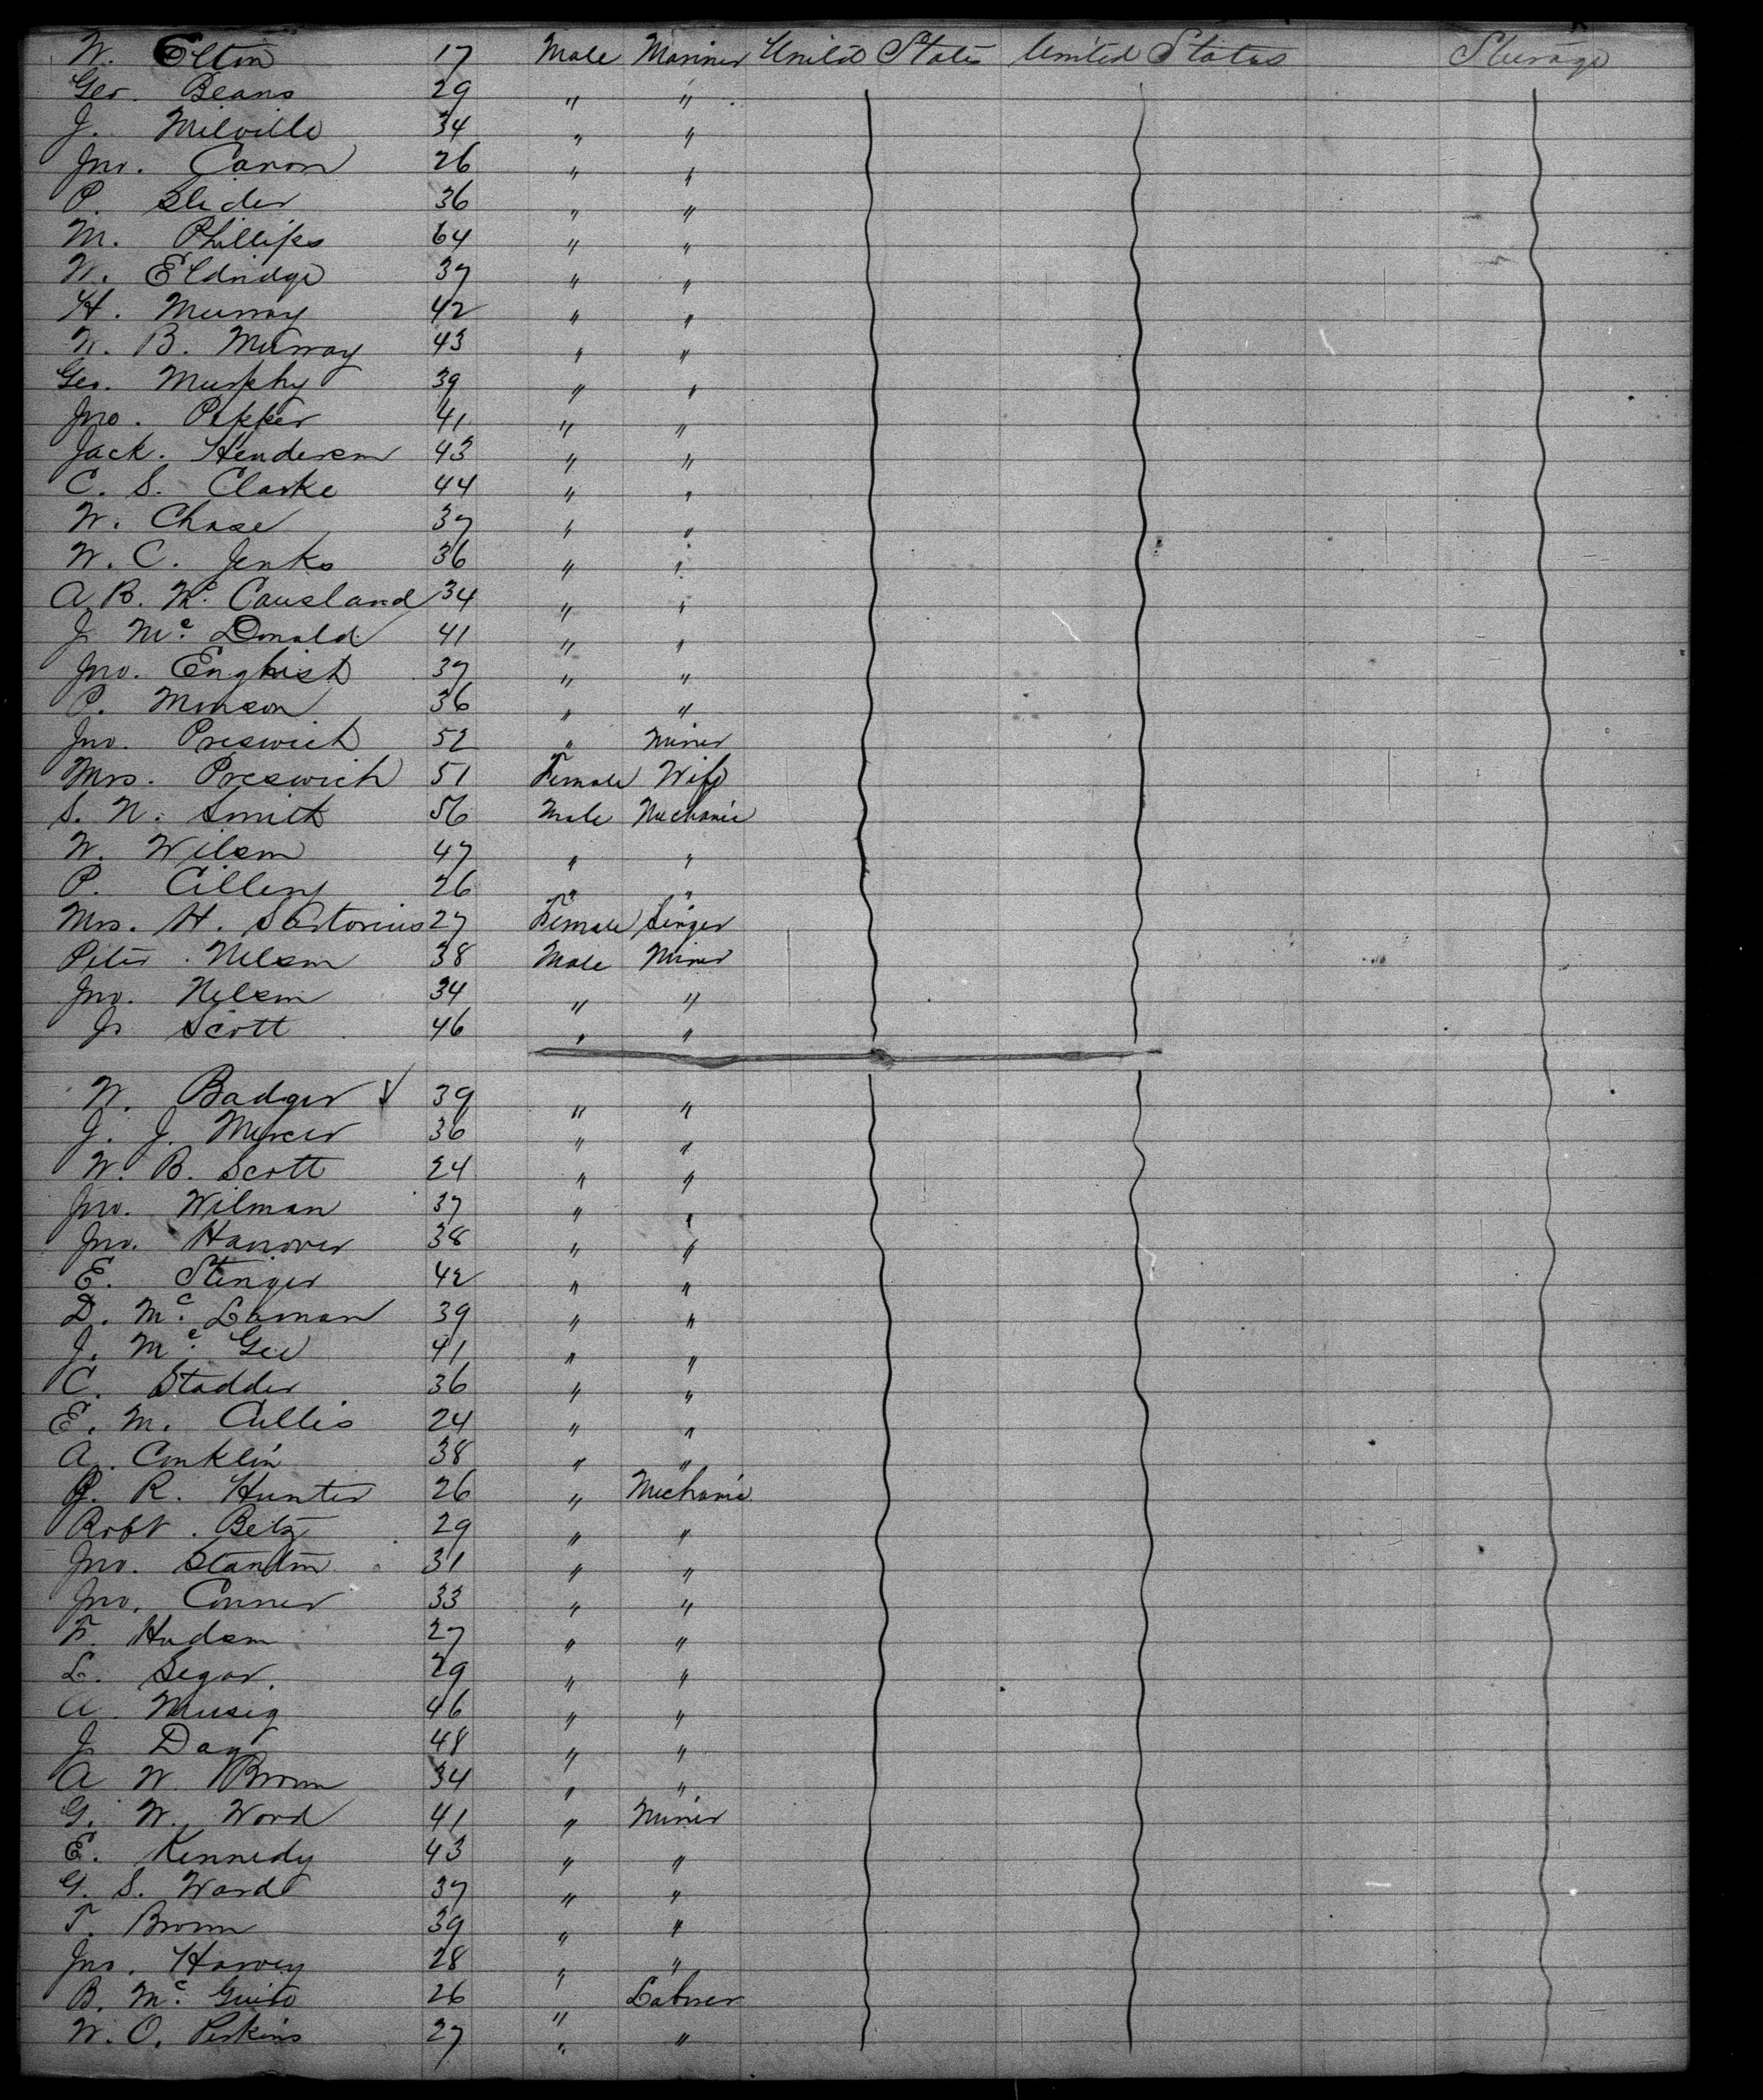 W. Elton 17 Male Mariner United States United States Steerage
Geo. Beans 29 " "
J. Milville 34 " "
Jno. Canon 26 " "
P. Slider 36 " "
M. Phillips 64 " "
W. Eldridge 37 " "
H. Murray 42 " "
W. B. Murray 43 " "
Geo. Murphy 39 " "
Jno. Pepper 41 " "
Jack. Henderson 43 " "
C. S. Clarke 44 " "
W. Chase 37 " "
W. C. Jenks 36 " "
A. B. Mc. Causland 34 " "
J Mc. Donald 41 " "
Jno. English 37 " "
P. Monson 36 " "
Jno. Preswich 52 " Miner
Mrs. Preswich 51 Female Wife
S. N. Smith 56 Male Mechanic
W. Wilson 47 " "
P. Cilleny 26 " "
Mrs. H. Sartorius 27 Female Singer
Peter Nelson 38 Male Miner
Jno. Nelson 34 " "
J. Scott 46 " "
W. Badger 39 " "
J. J. Mercer 36 " "
W. B. Scott 24 " "
Jno. Wilman 37 " "
Jno. Hanover 38 " "
E. Stenger 42 " "
D. Mc. Laman 39 " "
J. Mc. Gee 41 " "
C. Stadder 36 " "
E. M. Cullis 24 " "
A. Conklin 38 " "
R. Hunter 26 " Mechanic
Robt. Betz 29 " "
Jno. Stanton 31 " "
Jno. Conner 33 " "
F. Hudson 27 " "
L. Segar 29 " "
A Musig 46 " "
J Day 48 " "
A W. Brown 34 " "
G. W. Word 41 " Miner
E. Kennedy 43 " "
G. S. Ward 37 " "
T. Brown 39 " "
Jno. Harvey 28 " "
B. Mc. Guire 26 " Laborer
W. O. Perkins 27 " "